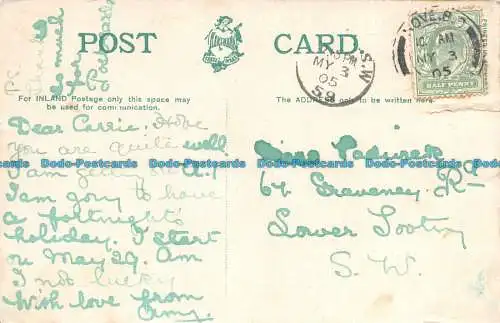 P.S.
Thanks
so much
for
Postcards
POST CARD.
HOVE.B.O
AM
MY 3
05
HALFPENNY
S.W
PM
MY 3
05
S.9
For INLAND Postage only this space may
be used for communication.
The ADDRESS only to be written here.
Dear Carrie. Hope
you are quite well.
I am getting on A.1
I am going to have
a fortnight's
holiday. I start
on May 29. Am
I not lucky
With love from
Amy.
Miss
64 Graveney Rd
Lower Tooting
S.W.
Dodo-Postcards Dodo-Postcards Dodo-Postcards Dodo-Postcards Dodo-Postcards